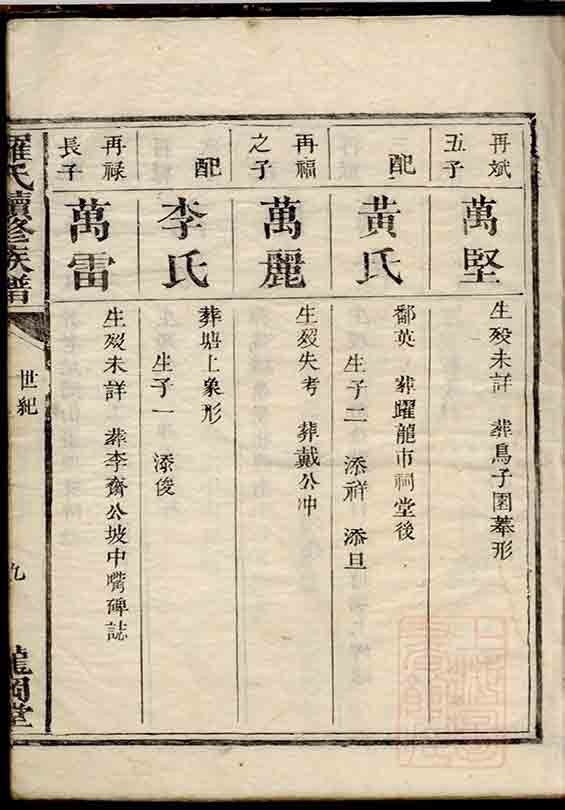 再斌
五子
萬堅
生歿未詳 葬鳥子園墓形
配
黃氏
鄱英 葬躍龍市祠堂後
生子二 添祥 添旦
再福
之子
萬麗
生歿失考 葬戴公冲
配
李氏
葬塘上象形
生子一 添俊
再禄
長子
萬雷
生歿未詳 葬李齋公坡中嘴碑誌
羅氏續修族譜
世紀
九
龍岡堂